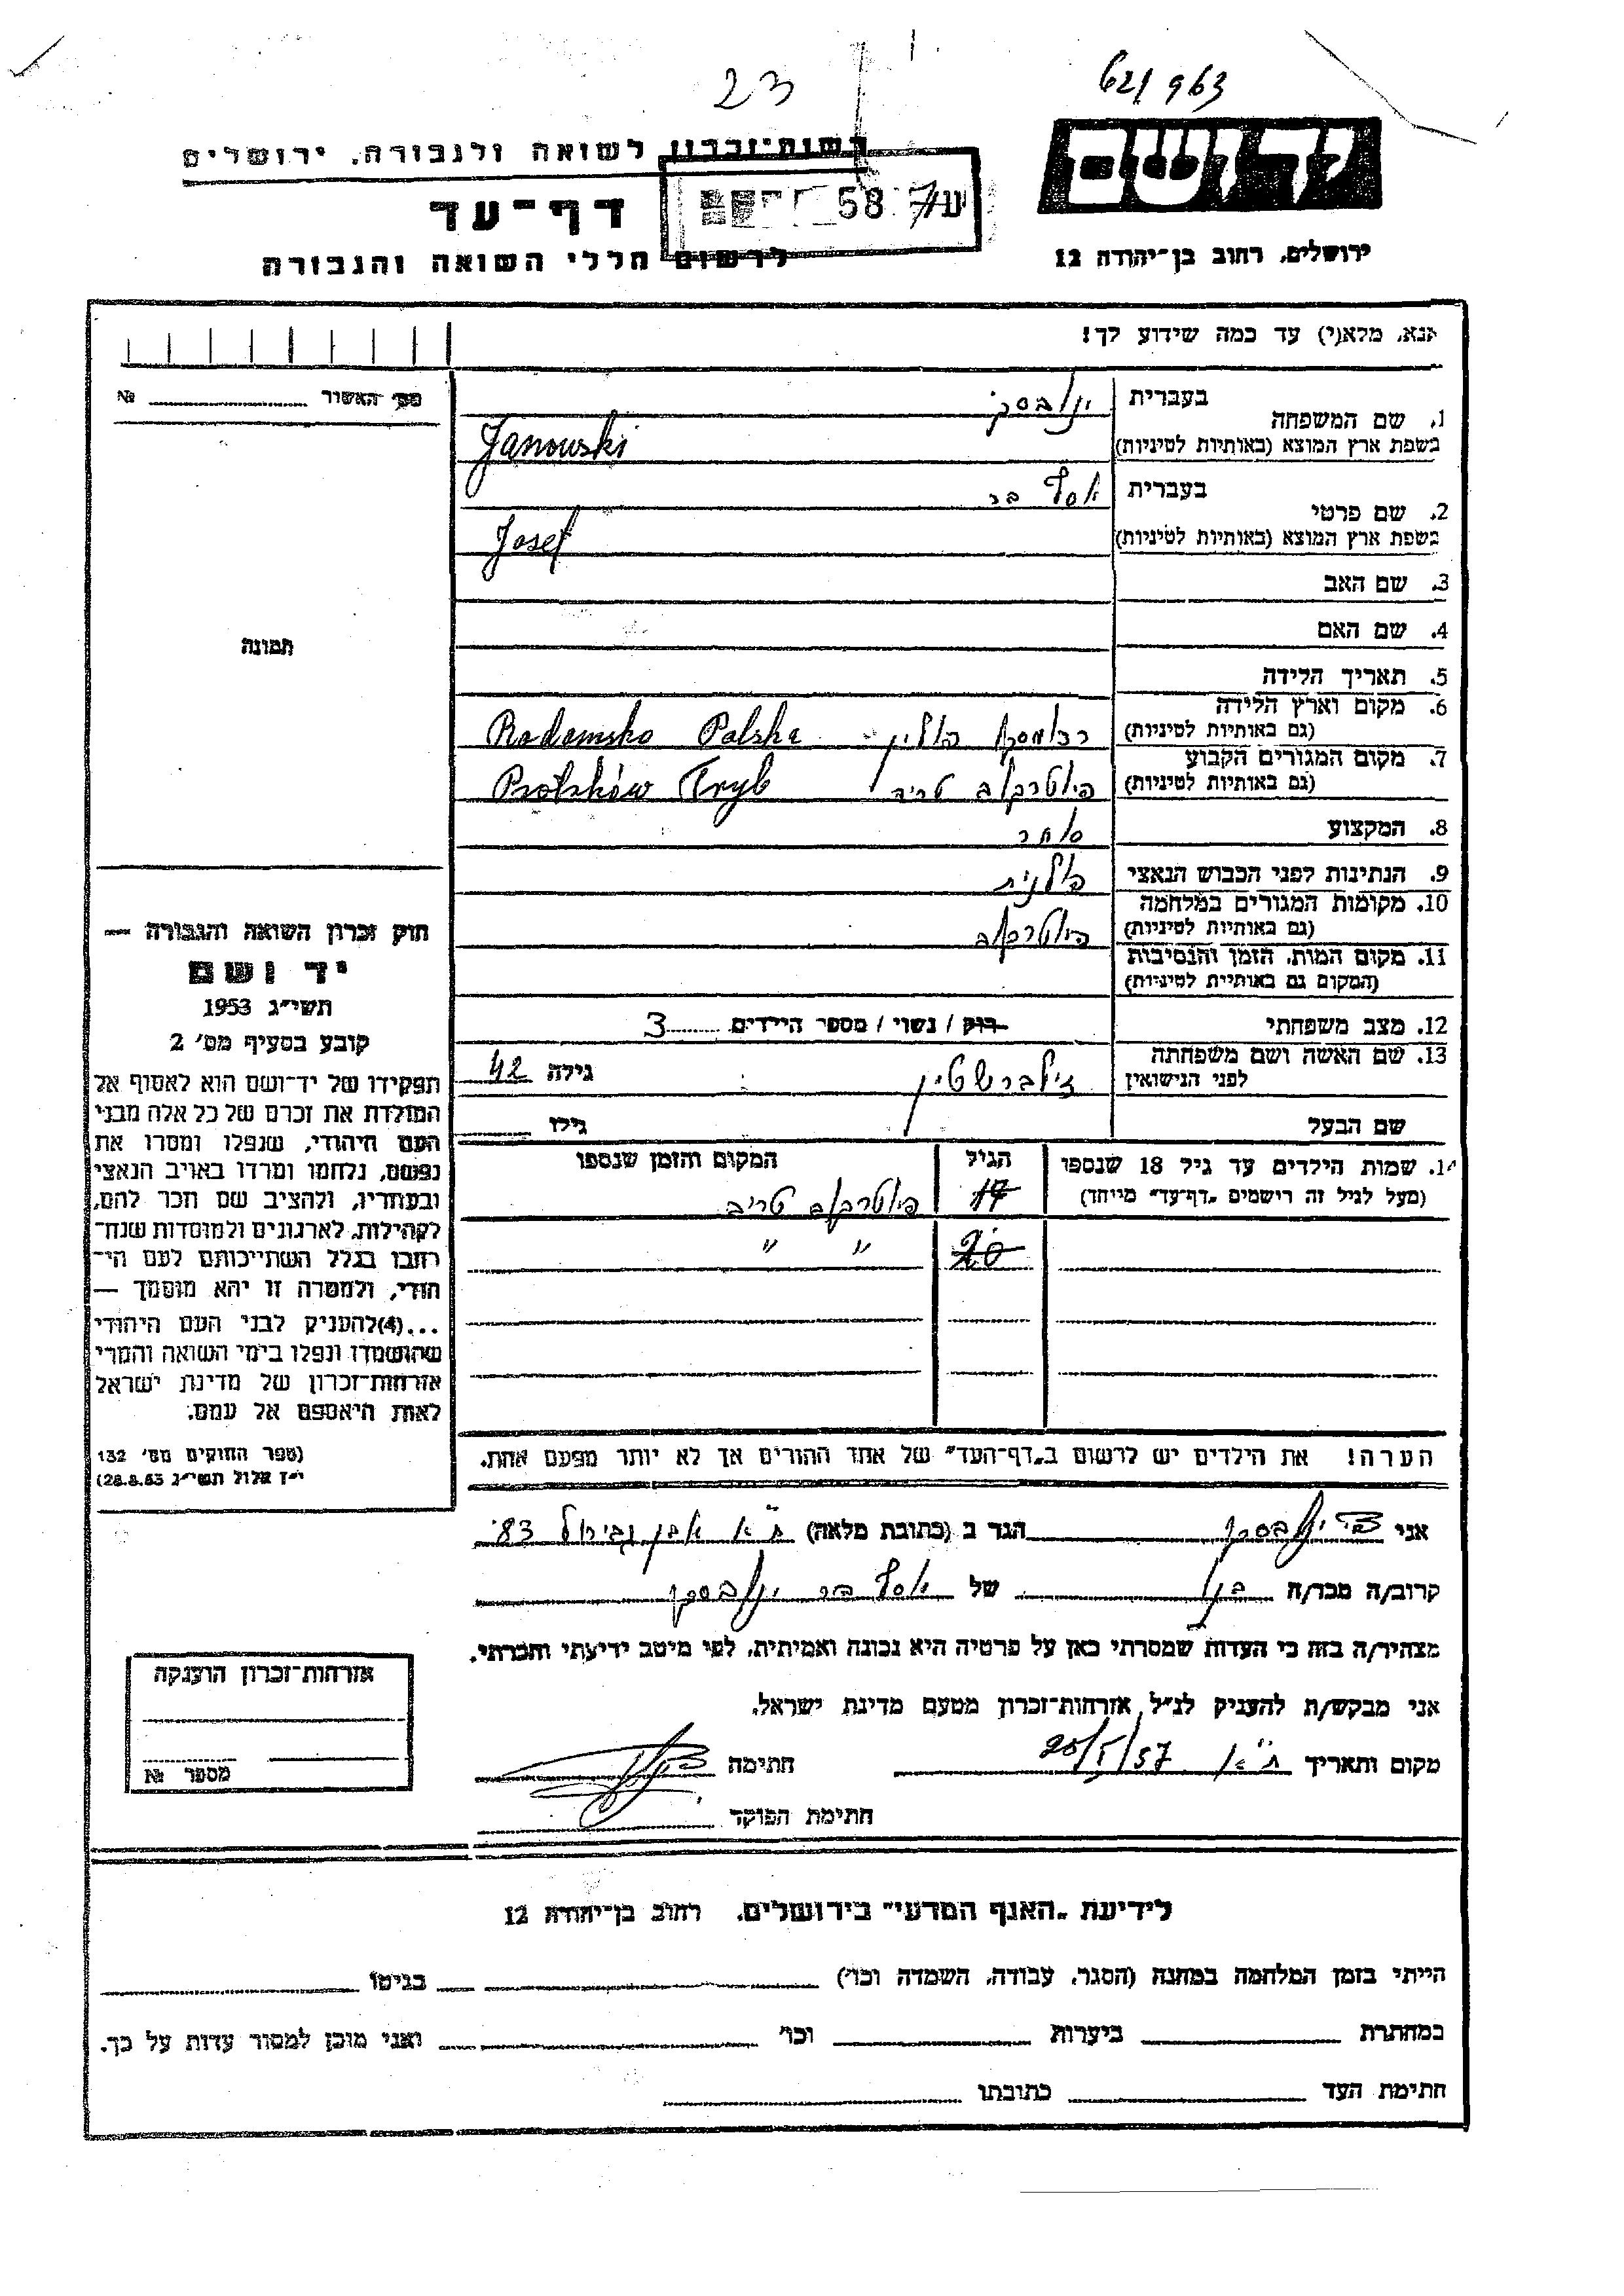 23
62/963
רשות־זכרון לשואה ולגבורה, ירושלים
דף־עד
58 ע7
לרשום חללי השואה והגבורה
יד ושם
ירושלים, רחוב בן־יהודה 12
אנא, מלא(י) עד כמה שידוע לך!
מס׳ האשור №
1. שם המשפחה בעברית ינובסקי
בשפת ארץ המוצא (באותיות לטיניות) Janowski
2. שם פרטי בעברית יוסף בר
בשפת ארץ המוצא (באותיות לטיניות) Josef
3. שם האב
4. שם האם
5. תאריך הלידה
6. מקום וארץ הלידה
(גם באותיות לטיניות) רדומסקו פולין Radomsko Polska
7. מקום המגורים הקבוע
(גם באותיות לטיניות) פיוטרקוב טריב Piotrków Tryb
8. המקצוע סוחר
9. הנתינות לפני הכבוש הנאצי פולנית
10. מקומות המגורים במלחמה
(גם באותיות לטיניות) פיוטרקוב
11. מקום המות, הזמן והנסיבות
(המקום גם באותיית לטיניות)
12. מצב משפחתי רוק / נשוי / מספר הילדים 3
13. שם האשה ושם משפחתה
לפני הנישואין זילברשטין גילה 42
שם הבעל גילו
14. שמות הילדים עד גיל 18 שנספו
(מעל לגיל זה רישמים „דף־עד״ מייחד)
הגיל
המקום והזמן שנספו
17 פיוטרקוב טריב
20 ״ ״
הערה! את הילדים יש לרשום ב„דף־העד״ של אחד ההורים אך לא יותר מפעם אחת.
תמונה
חוק זכרון השואה והגבורה —
יד ושם
תשי״ג 1953
קובע בסעיף מס׳ 2
תפקידו של יד־ושם הוא לאסוף אל
המולדת את זכרם של כל אלה מבני
העם היהודי, שנפלו ומסרו את
נפשם, נלחמו ומרדו באויב הנאצי
ובעוזריו, ולהציב שם וזכר להם,
לקהילות, לארגונים ולמוסדות שנח־
רחבו בגלל השתייכותם לעם הי־
הודי, ולמטרה זו יהא מוסמך —
...(4)להעניק לבני העם היהודי
שהושמדו ונפלו בימי השואה והמרי
אזרחות־זכרון של מדינת ישראל
לאות היאספם אל עמם.
(ספר החוקים מס׳ 132
י״ז אלול תשי״ג 28.8.53)
אני צבי ינובסקי הגר ב (כתובת מלאה) ת״א אבן גבירול 83
קרוב/ה מכר/ה בנו של יוסף בר ינובסקי
מצהיר/ה בזה כי העדות שמסרתי כאן על פרטיה היא נכונה ואמיתית, לפי מיטב ידיעתי והכרתי.
אני מבקש/ת להעניק לנ״ל אזרחות־זכרון מטעם מדינת ישראל.
מקום ותאריך ת״א 20/5/57 חתימה
חתימת הפוקד
אזרחות־זכרון הוענקה
מספר №
לידיעת „האגף המדעי״ בירושלים, רחוב בן־יהודה 12
הייתי בזמן המלחמה במחנה (הסגר, עבודה, השמדה וכו׳) בגיטו
במחתרת ביערות וכו׳ ואני מוכן למסור עדות על כך.
חתימת העד כתובתו